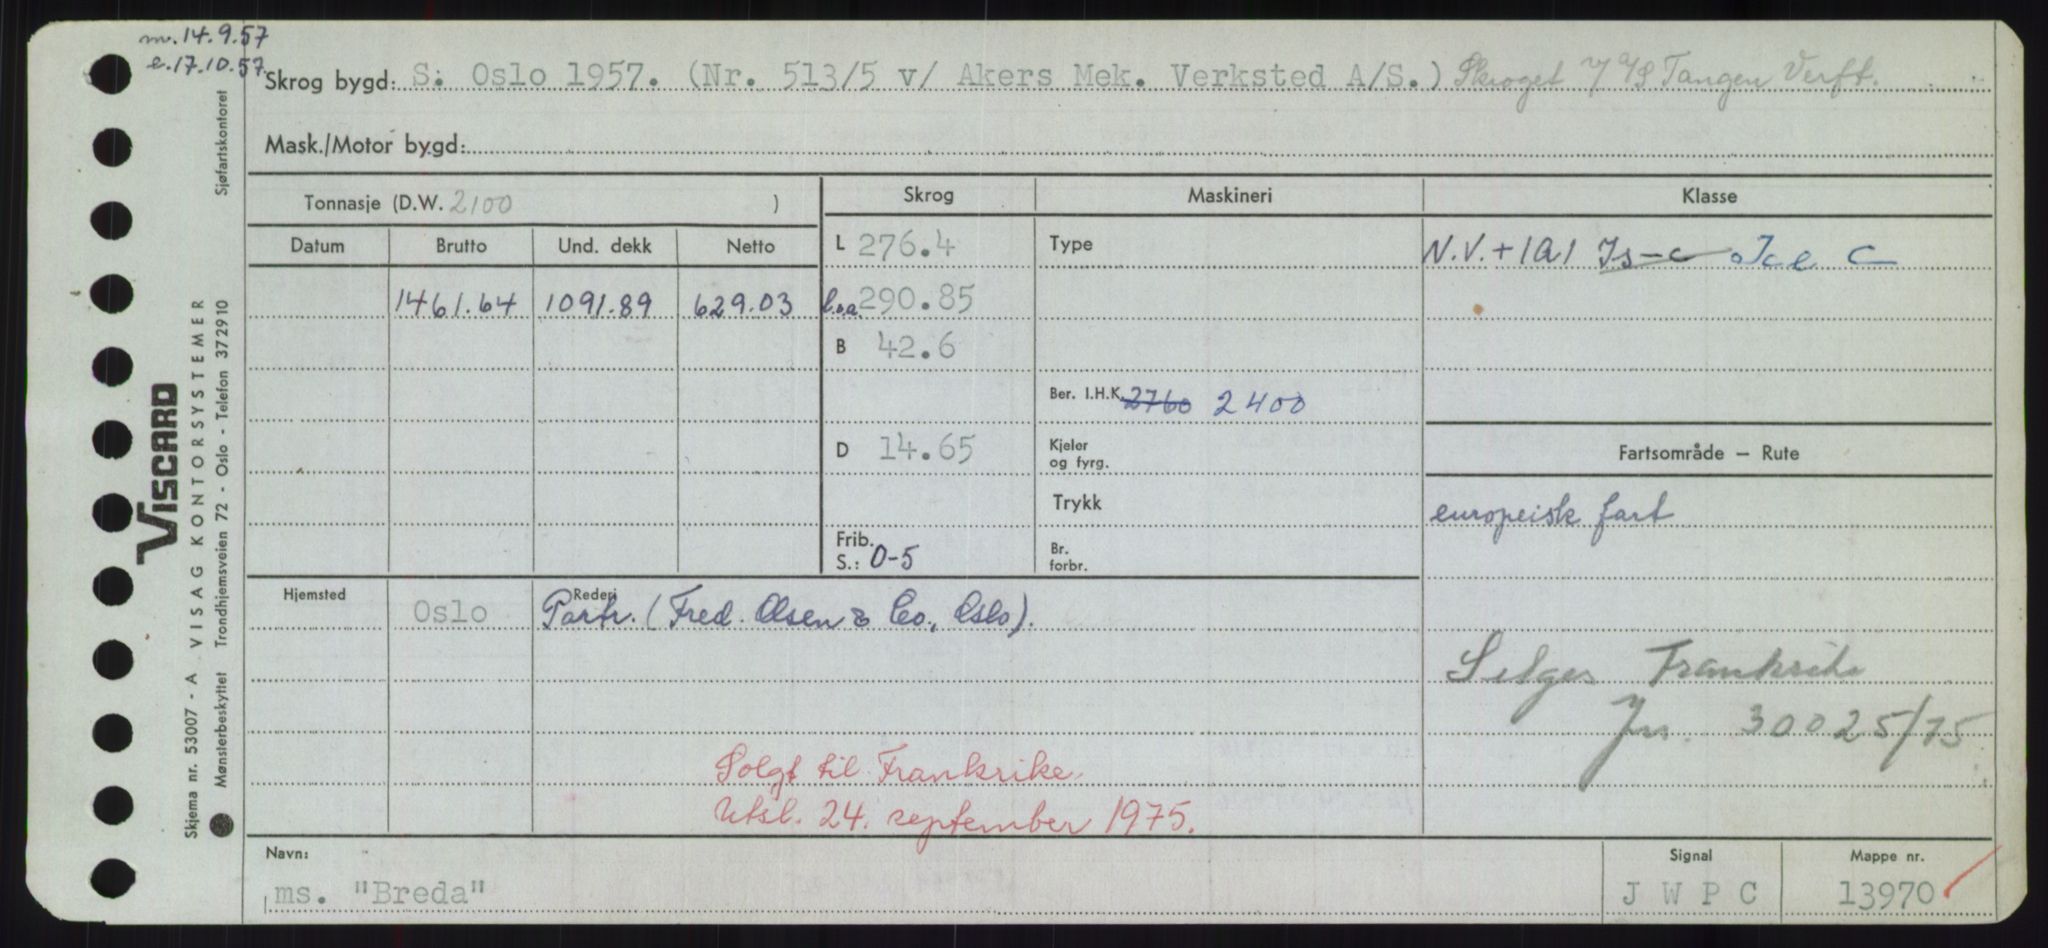 m. 14.9.57
e. 17.10.57
Skrog bygd: S: Oslo 1957. (Nr. 513/5 v/ Akers Mek. Verksted A/S.) Skroget v/ A/S Tangen Verft.
Mask./Motor bygd:
Tonnasje (D.W. 2100 )
Skrog Maskineri Klasse
Datum Brutto Und. dekk Netto
L 276.4 Type N.V. + 1A1 Is-c Ice C
1461.64 1091.89 629.03 l.o.a. 290.85
B 42.6
Ber. I.H.K. 2760 2400
D 14.65 Kjeler og fyrg. Fartsområde – Rute
Trykk europeisk fart
Frib. S.: 0-5 Br. forbr.
Hjemsted Rederi
Oslo Partr. (Fred. Olsen & Co., Oslo).
Selges Frankrike
Jnr. 30025/75
Solgt til Frankrike
Utsl. 24. september 1975.
Navn: Signal Mappe nr.
ms. "Breda" J W P C 13970
VISCARD
Skjema nr. 53007 - A VISAG KONTORSYSTEMER
Mønsterbeskyttet Trondhjemsveien 72 - Oslo - Telefon 372910 Sjøfartskontoret